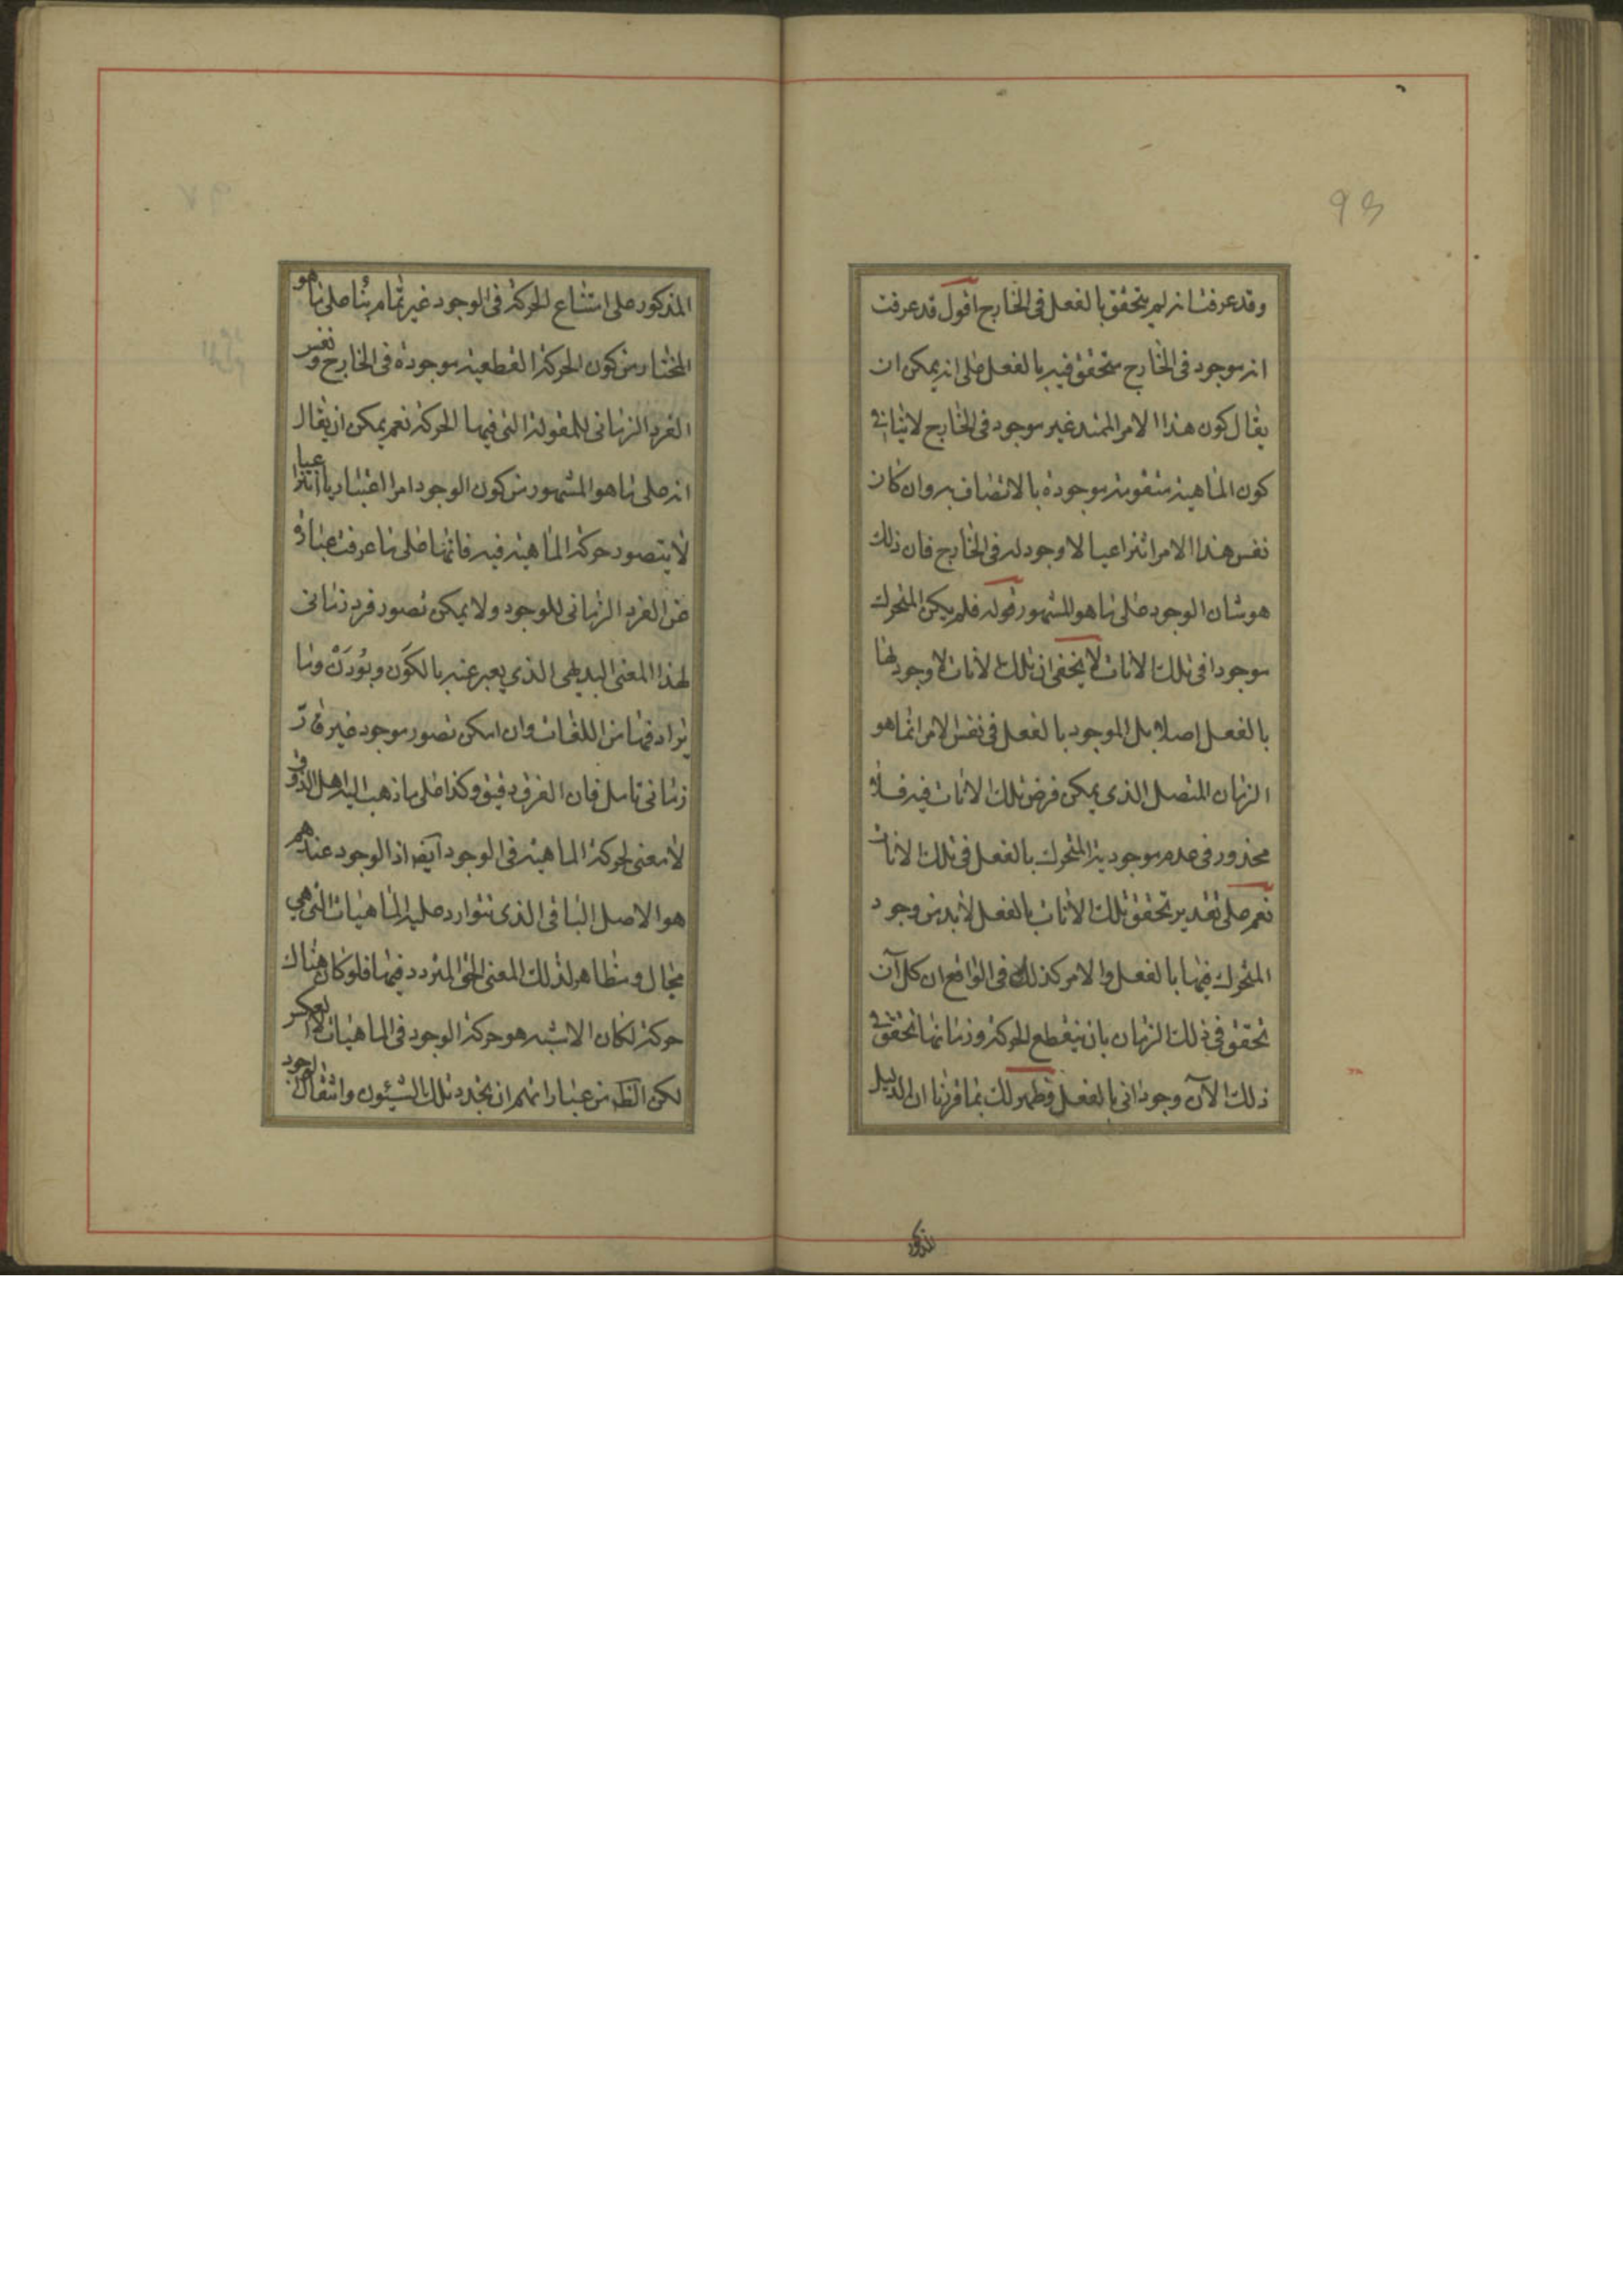 93
وقد عرفت انه لم يتحقق بالفعل في الخارج اقول قد عرفت
انه موجود في الخارج متحقق فيه بالفعل على انه يمكن ان
يقال كون هذا الامر الممتد غير موجود في الخارج لا ينافي
كون الماهية متقومة موجودة بالاتصاف به وان كان
نفس هذا الامر انتزاعيا لا وجود له في الخارج فان ذلك
هو شان الوجود على ما هو المشهور قوله فلم يكن المتحرك
موجودا في تلك الانات لا يخفى ان تلك الانات لا وجود لها
بالفعل اصلا بل الموجود بالفعل في نفس الامر انما هو
الزمان المتصل الذي يمكن فرض تلك الانات فيه فلا
محذور في عدم موجودية المتحرك بالفعل في تلك الانات
نعم على تقدير تحقق تلك الانات بالفعل لا بد من وجود
المتحرك فيها بالفعل والامر كذلك في الواقع ان كل آن
تحقق في ذلك الزمان بان ينقطع الحركة وزمانها تحقق في
ذلك الآن وجود اني بالفعل وظهر لك بما قررنا ان الدليل
المذكور
المذكور على امتناع الحركة في الوجود غير تمام بناء على ما هو
المختار من كون الحركة القطعية موجودة في الخارج ونفس
الفرد الزماني للمقولة التي فيها الحركة نعم يمكن ان يقال
انه على ما هو المشهور من كون الوجود امرا اعتباريا انتزاعيا
لا يتصور حركة الماهية فيه فانها على ما عرفت عبارة
عن الفرد الزماني للوجود ولا يمكن تصور فرد زماني
لهذا المعنى البديهي الذي يعبر عنه بالكون وبودن وما
يرادفها من اللغات وان امكن تصور موجود غير قار
زماني تامل فان الفرق دقيق وكذا على ما ذهب اليه اهل الذوق
لا معنى لحركة الماهية في الوجود ايضه اذ الوجود عندهم
هو الاصل الباقي الذي تتوارد عليه الماهيات التي هي
مجال ومظاهر لذلك المعنى الحق المتردد فيها فلو كان هناك
حركة لكان الاشبه هو حركة الوجود في الماهيات لا العكس
لكن الظه من عباراتهم ان تجدد تلك الشيئون وانتقال الوجود